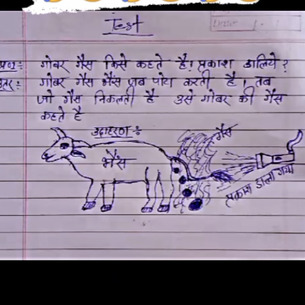 Test
प्रश्न:- गोबर गैस किसे कहते है! प्रकाश डालिये?
उत्तर:- गोबर गैस भैंस जब पोटा करती है। तब
जो गैस निकलती है उसे गोबर की गैस
कहते है
उदाहरण:-
गैस
भैंस
प्रकाश डाला गया